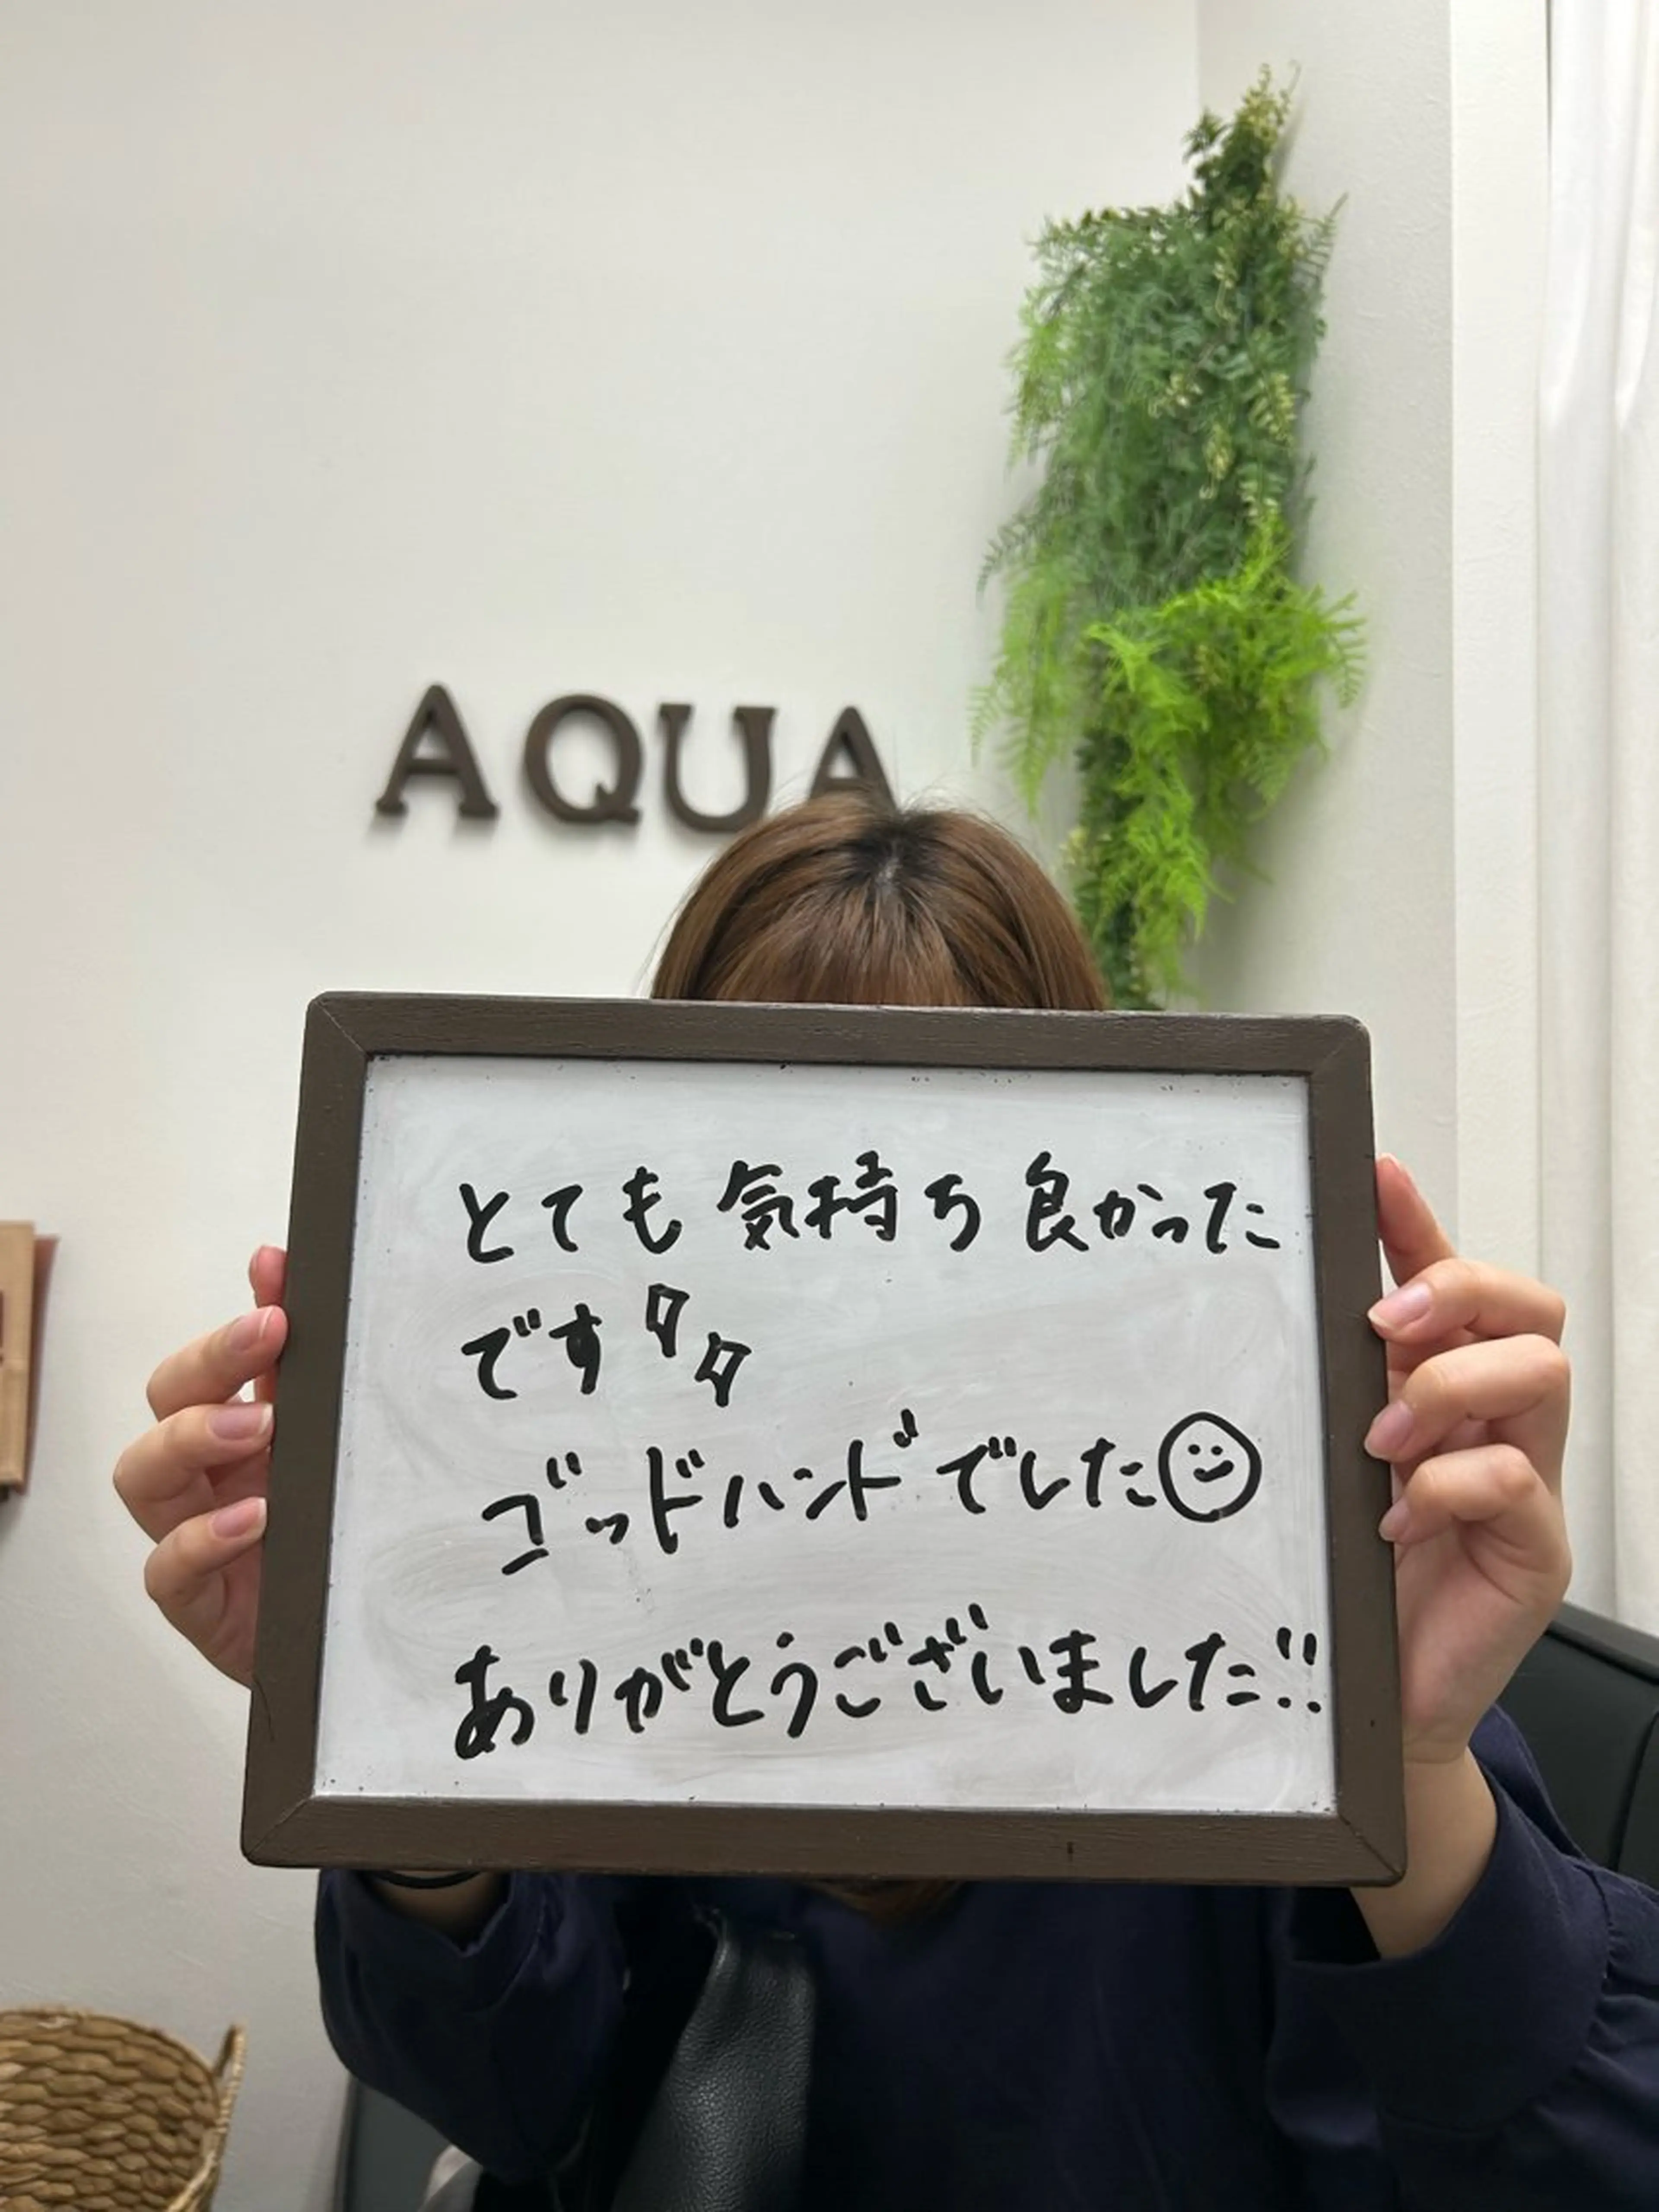 AQUA
とても気持ち良かった
です
ゴッドハンドでした
ありがとうございました!!